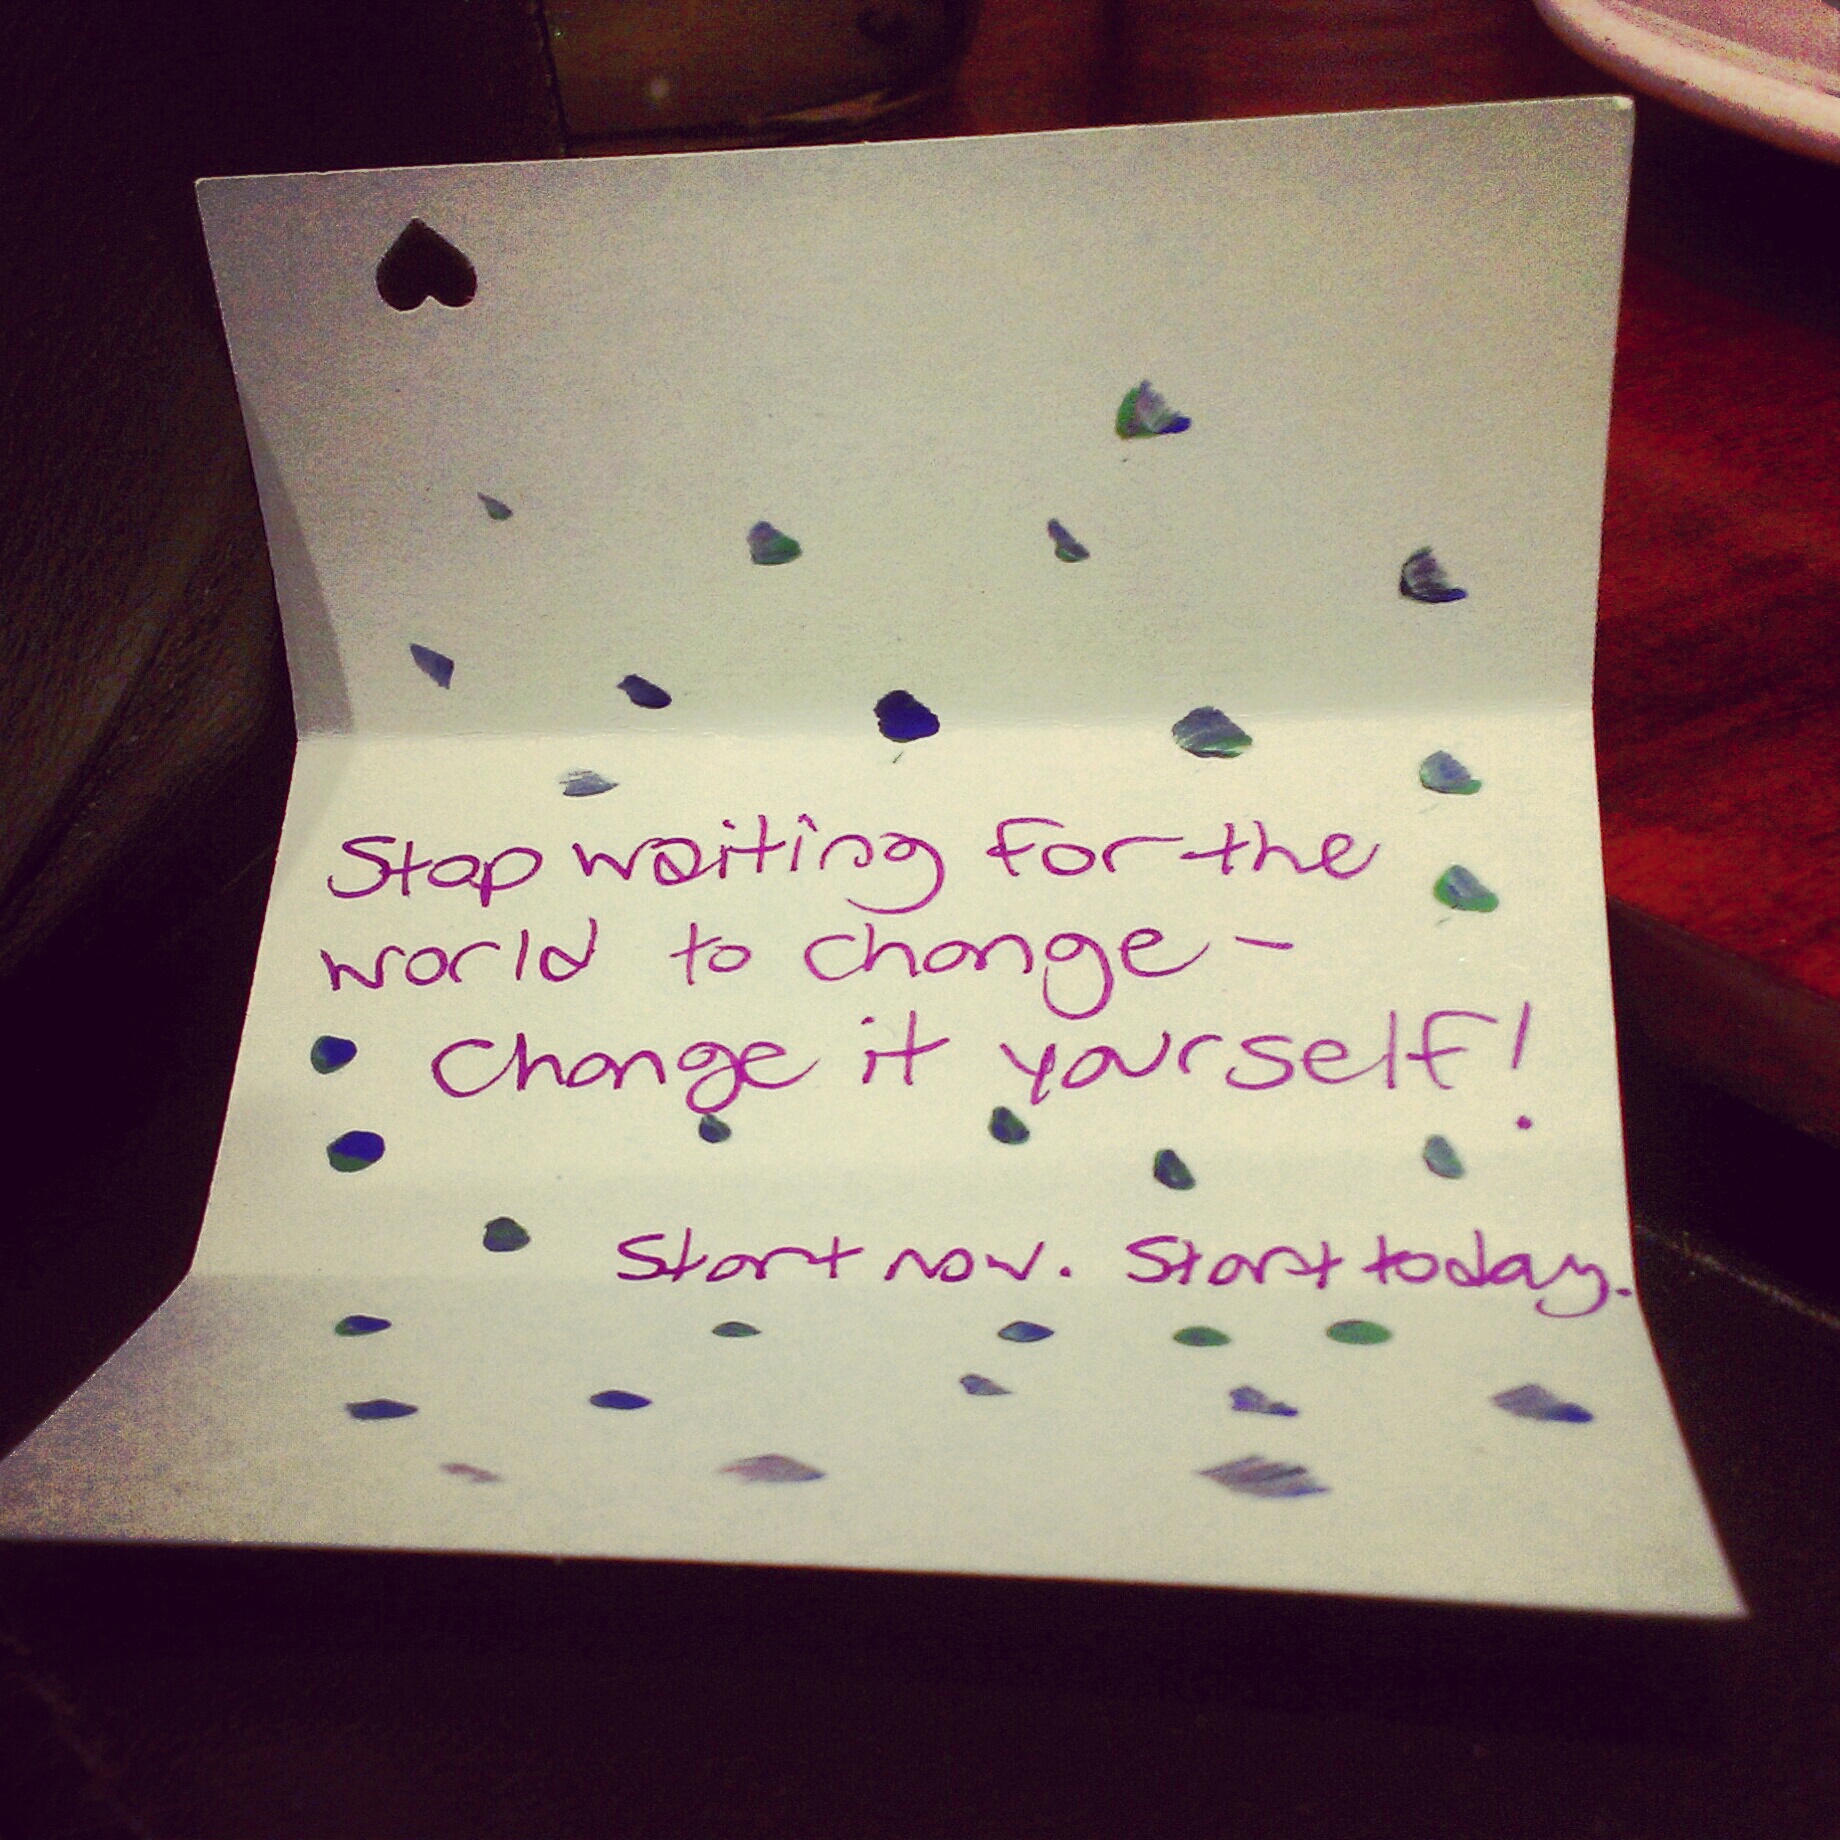 Stop waiting for the
world to change -
Change it yourself!
Start now. Start today.